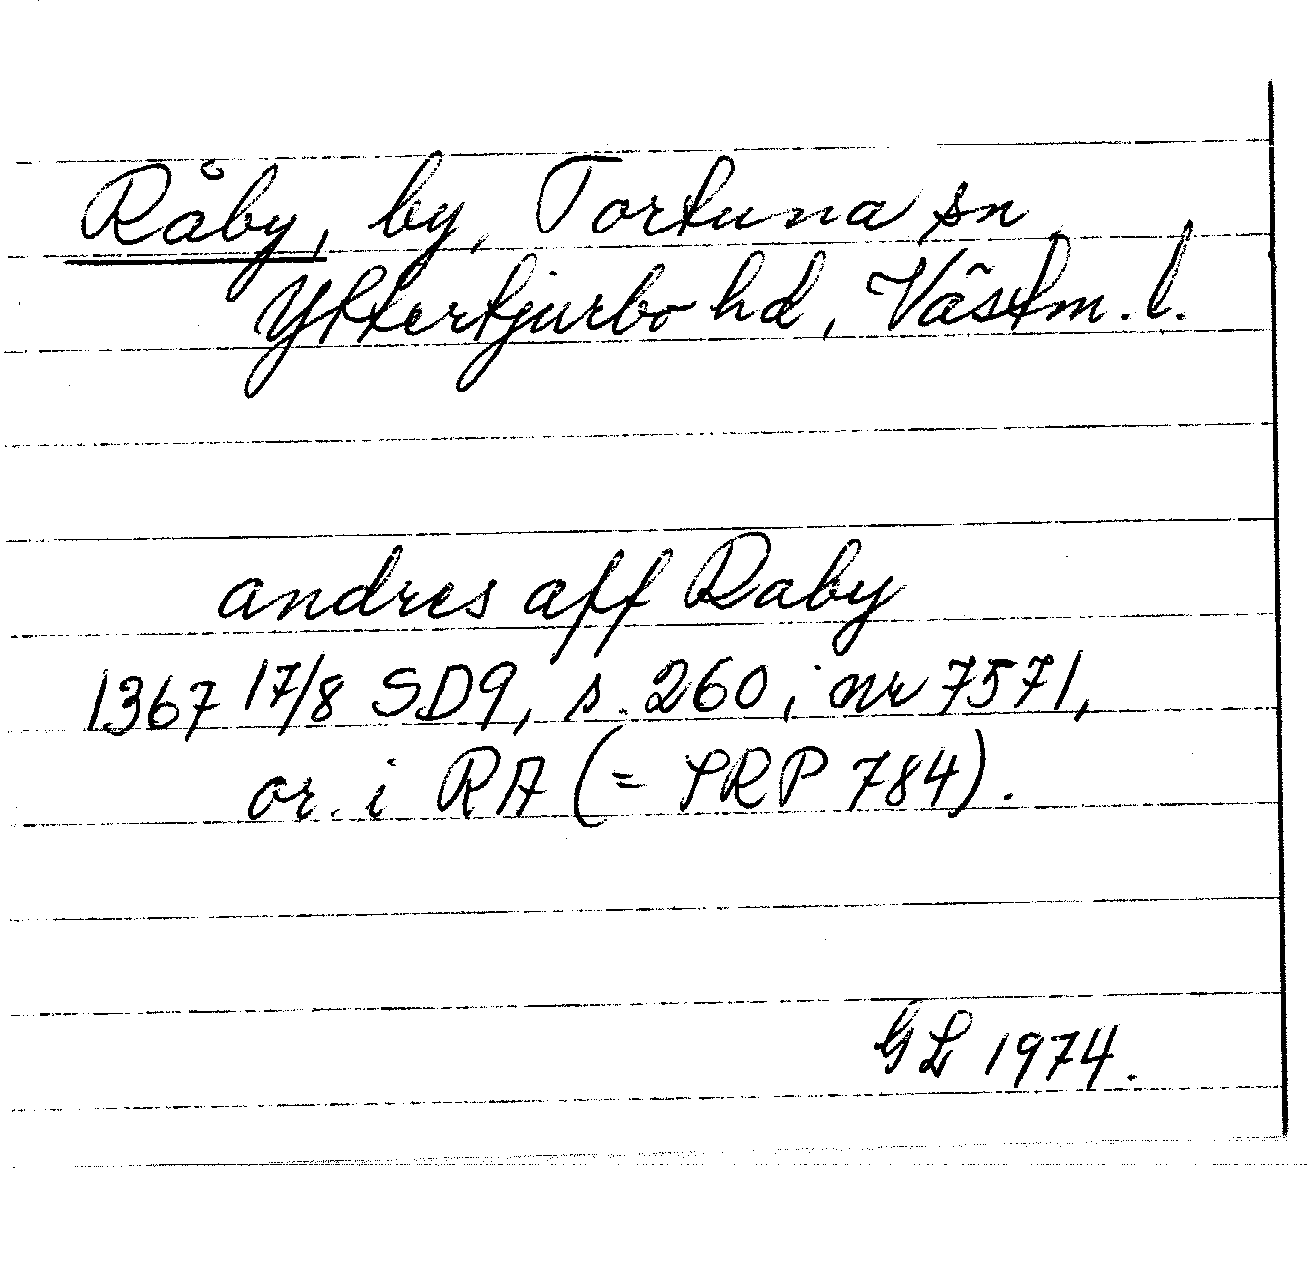 Råby, by, Tortuna sn
Yttertjurbo hd, Västm. l.
andres aff Raby
1367 17/8 SD9, s. 260, nr 7571,
or. i RA (= SRP 784).
GL 1974.